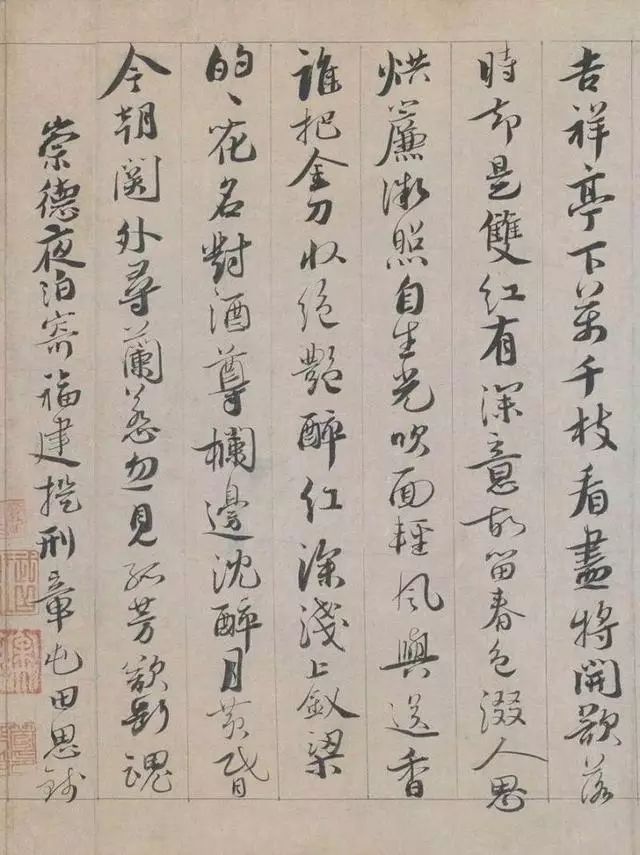 吉祥亭下萬千枝看盡將開欲落
時却是雙紅有深意故留春色綴人思
烘簾微照自生光吹面輕風與送香
誰把金刀收絕艷醉紅深淺上釵梁
的〻花名對酒尊欄邊沈醉月黃昏
今朝關外尋蘭蕙忽見孤芳欲斷魂
崇德夜泊寄福建提刑章屯田思錢